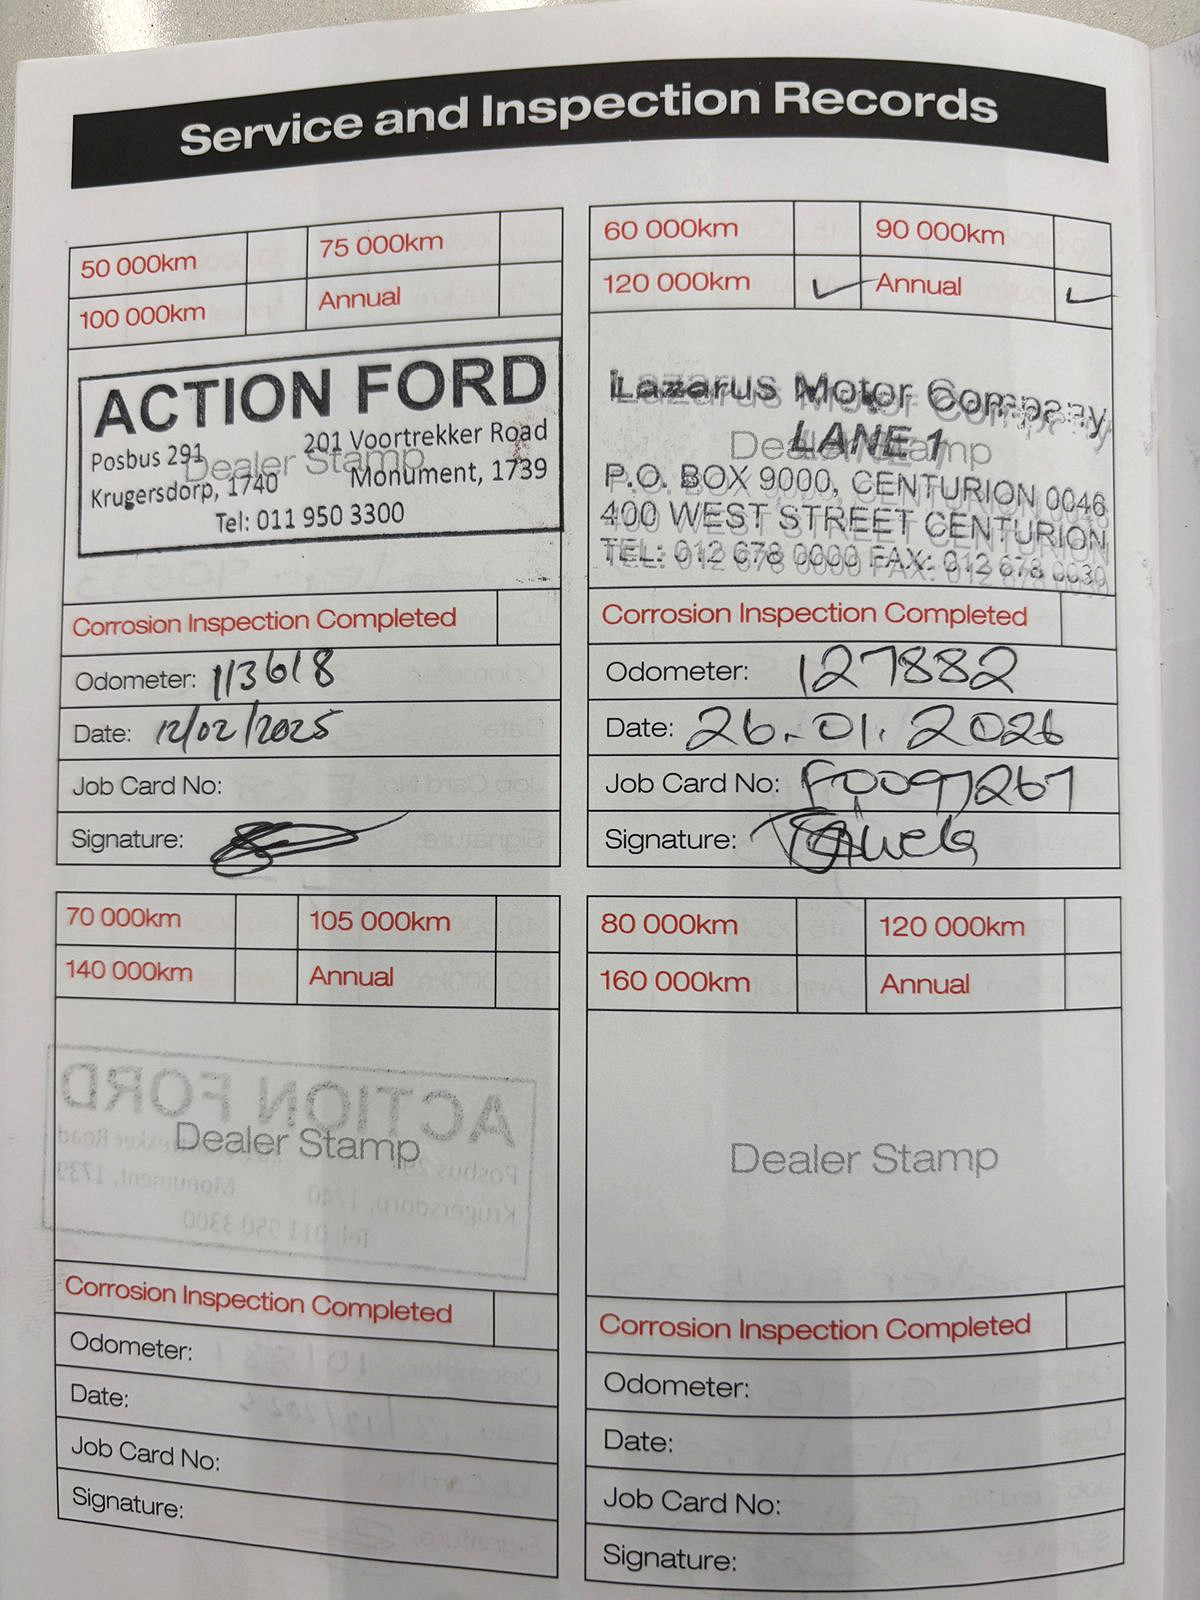 Service and Inspection Records
50 000km
75 000km
100 000km
Annual
ACTION FORD
Posbus 291
201 Voortrekker Road
Dealer Stamp
Krugersdorp, 1740
Monument, 1739
Tel: 011 950 3300
Corrosion Inspection Completed
Odometer: 113618
Date: 12/02/2025
Job Card No:
Signature:
60 000km
90 000km
120 000km
Annual
Lazarus Motor Company
Dealer Stamp
LANE 1
P.O. BOX 9000, CENTURION 0046
400 WEST STREET CENTURION
TEL: 012 678 0000 FAX: 012 678 0030
Corrosion Inspection Completed
Odometer: 127882
Date: 26.01.2026
Job Card No: F0097267
Signature:
70 000km
105 000km
140 000km
Annual
ACTION FORD
Dealer Stamp
Posbus 291
Krugersdorp, 1740
Monument, 1739
Tel: 011 950 3300
Corrosion Inspection Completed
Odometer:
Date:
Job Card No:
Signature:
80 000km
120 000km
160 000km
Annual
Dealer Stamp
Corrosion Inspection Completed
Odometer:
Date:
Job Card No:
Signature: